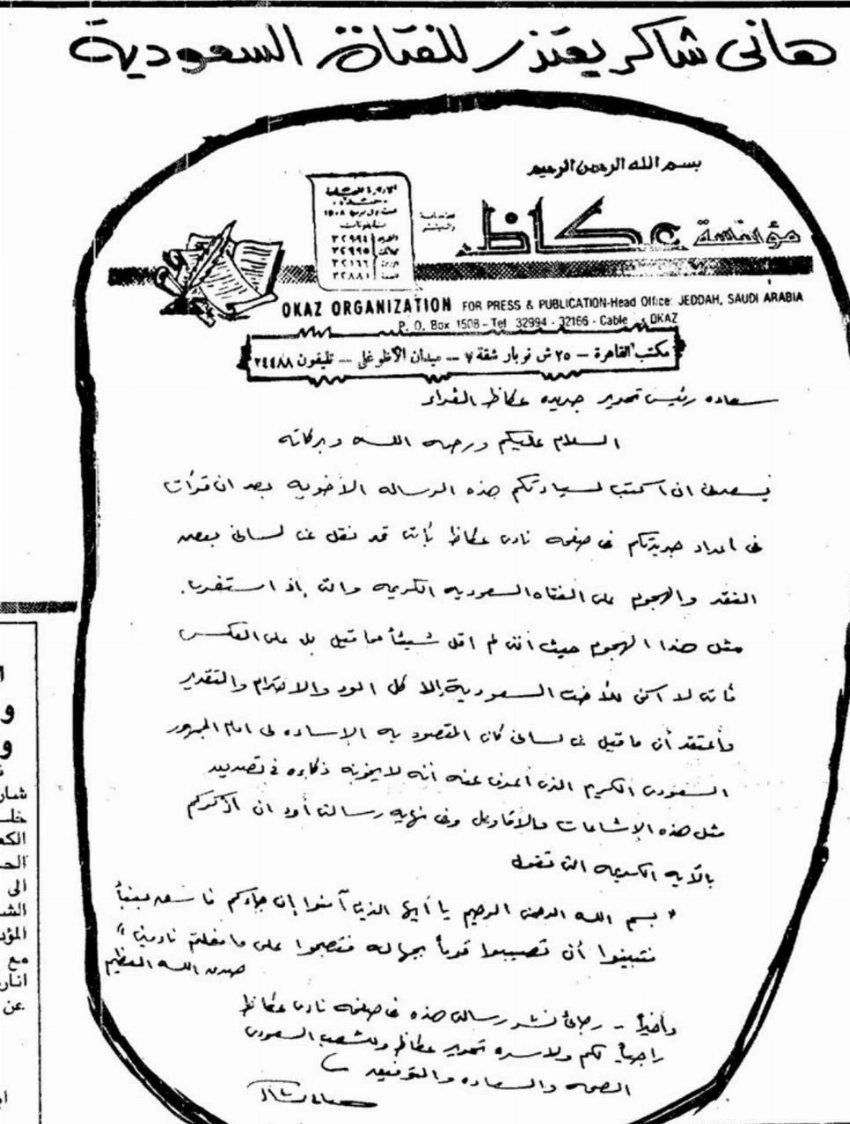 هانى شاكر يعتذر للفتاة السعودية
بسم الله الرحمن الرحيم
مؤسسة عكاظ
للصحافة والنشر
٣٢٩٩٤
٣٢٩٩٥
٣٢١٦٦
٣٢٨٨١
OKAZ ORGANIZATION FOR PRESS & PUBLICATION-Head Office: JEDDAH, SAUDI ARABIA
P. O. Box 1508 - Tel 32994 - 32166 - Cable OKAZ
مكتب القاهرة - ٢٥ ش نوبار شقة ٧ - ميدان الاظوغلى - تليفون ٢٤٤٨٨
سعاده رئيس تحرير جريده عكاظ الغراء
السلام عليكم ورحمه الله وبركاته
يسعدنى ان اكتب لسيادتكم هذه الرساله الأخويه بعد ان قرأت
فى اعداد جريدتكم فى صفحه نادى عكاظ بأننى قد نقل عن لسانى بعض
النقد والهجوم على الفتاه السعوديه الكريمه والتى إذ استغربا.
مثل هذا الهجوم حيث أننى لم اقل شيئاً مما قيل بل على العكس
فأننى لا اكن للأخت السعودية إلا كل الود والاحترام والتقدير
وأعتقد أن ما قيل عن لسانى كان المقصود به الإساءه لى امام الجمهور
السعودى الكريم الذى أعرف عنه أنه لا يخونه ذكاءه فى تصديد
مثل هذه الإشاعات والأقاويل وفى نهايه رسالتى أود ان أذكركم
بالآيه الكريمه التى تقول
" بسم الله الرحمن الرحيم يا أيها الذين آمنوا إن جاءكم فاسق بنبأ
فتبينوا أن تصيبوا قوماً بجهاله فتصبحوا على ما فعلتم نادمين "
صدق الله العظيم
وأخيراً - رجائى نشر رسالتى هذه فى صفحه نادى عكاظ
راجياً لكم ولاسره تحرير عكاظ وللشعب السعودى
الصحه والسعاده والتوفيق
هانى شاكر
شار
خلـ
الحـ
الى
الشـ
المؤ
مع
انار
عن